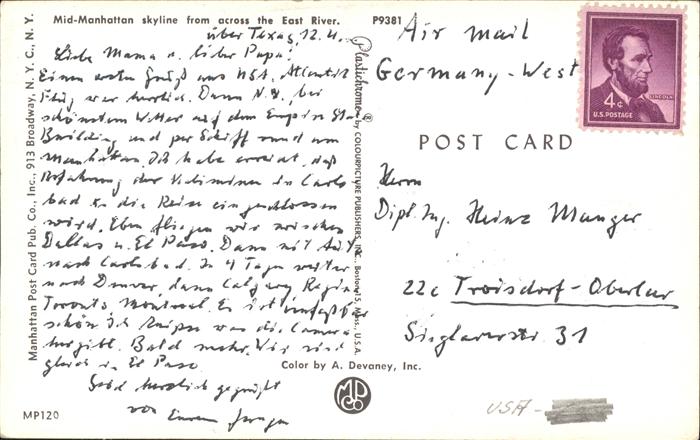 Mid-Manhattan skyline from across the East River.
P9381
über Texas, 12.4.
Liebe Mama u. lieber Papa!
Einen ersten Gruß aus USA. Atlantik
Flug war herrlich. Dann N.Y., bei
schönstem Wetter auf dem Empire St.
Building und per Schiff rund um
Manhattan. Ich habe erreicht, daß
Befahrung der Kaliminen in Carls
bad in die Reise eingeschlossen
wird. Eben fliegen wir zwischen
Dallas u. El Paso. Dann mit Auto
nach Carlsbad. In 4 Tagen weiter
nach Denver, dann Calgary Regina
Toronto, Montreal. Es ist unfaßbar
schön. Ich knipse was die Camera
hergibt. Bald mehr. Wir sind
gleich in El Paso.
Seid herzlich gegrüßt
von Eurem
Manhattan Post Card Pub. Co., Inc., 913 Broadway, N. Y. C., N. Y.
MP120
Plastichrome ® by COLOURPICTURE PUBLISHERS, INC., Boston 15, Mass., U.S.A.
Color by A. Devaney, Inc.
MP CO
Air Mail
Germany - West
LINCOLN
4¢
U.S. POSTAGE
POST CARD
Herrn
Dipl. Ing. Heinz Manger
22c Troisdorf-Oberlar
Sieglarerstr. 31
USA -